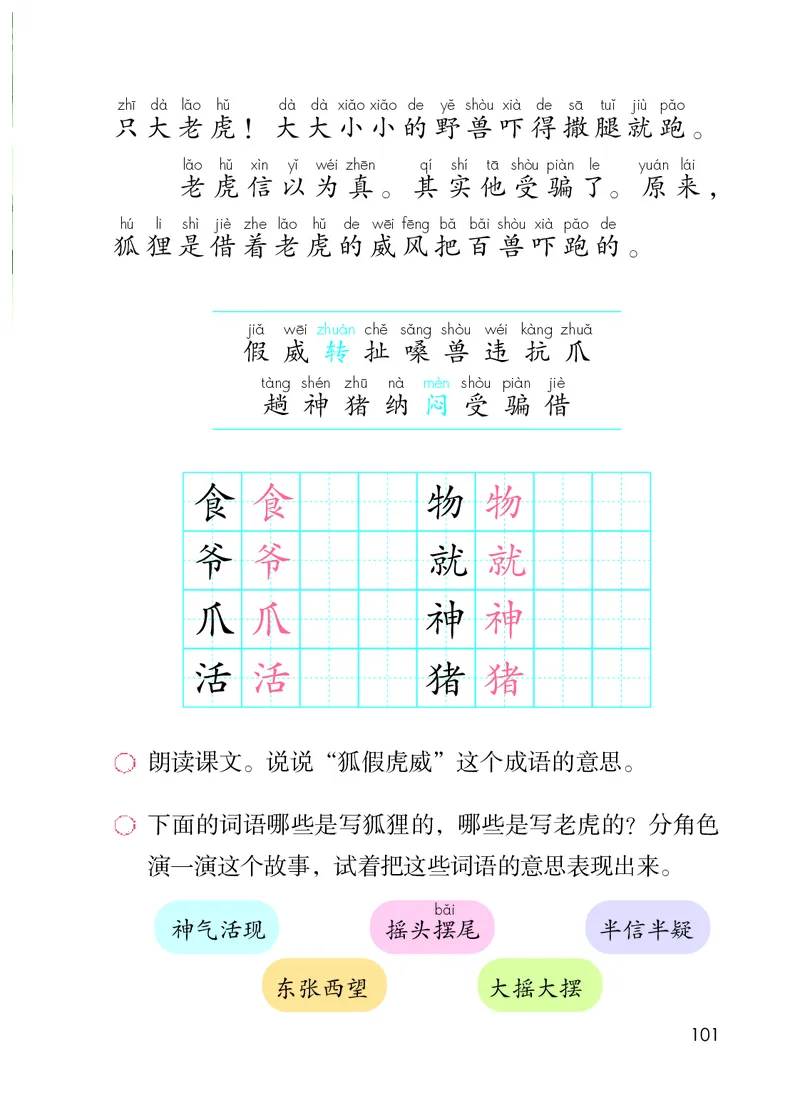 zhī dà lǎo hǔ dà dà xiǎo xiǎo de yě shòu xià de sā tuǐ jiù pǎo
只大老虎！大大小小的野兽吓得撒腿就跑。
lǎo hǔ xìn yǐ wéi zhēn qí shí tā shòu piàn le yuán lái
老虎信以为真。其实他受骗了。原来，
hú li shì jiè zhe lǎo hǔ de wēi fēng bǎ bǎi shòu xià pǎo de
狐狸是借着老虎的威风把百兽吓跑的。
jiǎ wēi zhuàn chě sǎng shòu wéi kàng zhuǎ
假威转扯嗓兽违抗爪
tàng shén zhū nà mèn shòu piàn jiè
趟神猪纳闷受骗借
食食 物物
爷爷 就就
爪爪 神神
活活 猪猪
朗读课文。说说“狐假虎威”这个成语的意思。
下面的词语哪些是写狐狸的，哪些是写老虎的？分角色
演一演这个故事，试着把这些词语的意思表现出来。
bǎi
神气活现 摇头摆尾 半信半疑
东张西望 大摇大摆
101